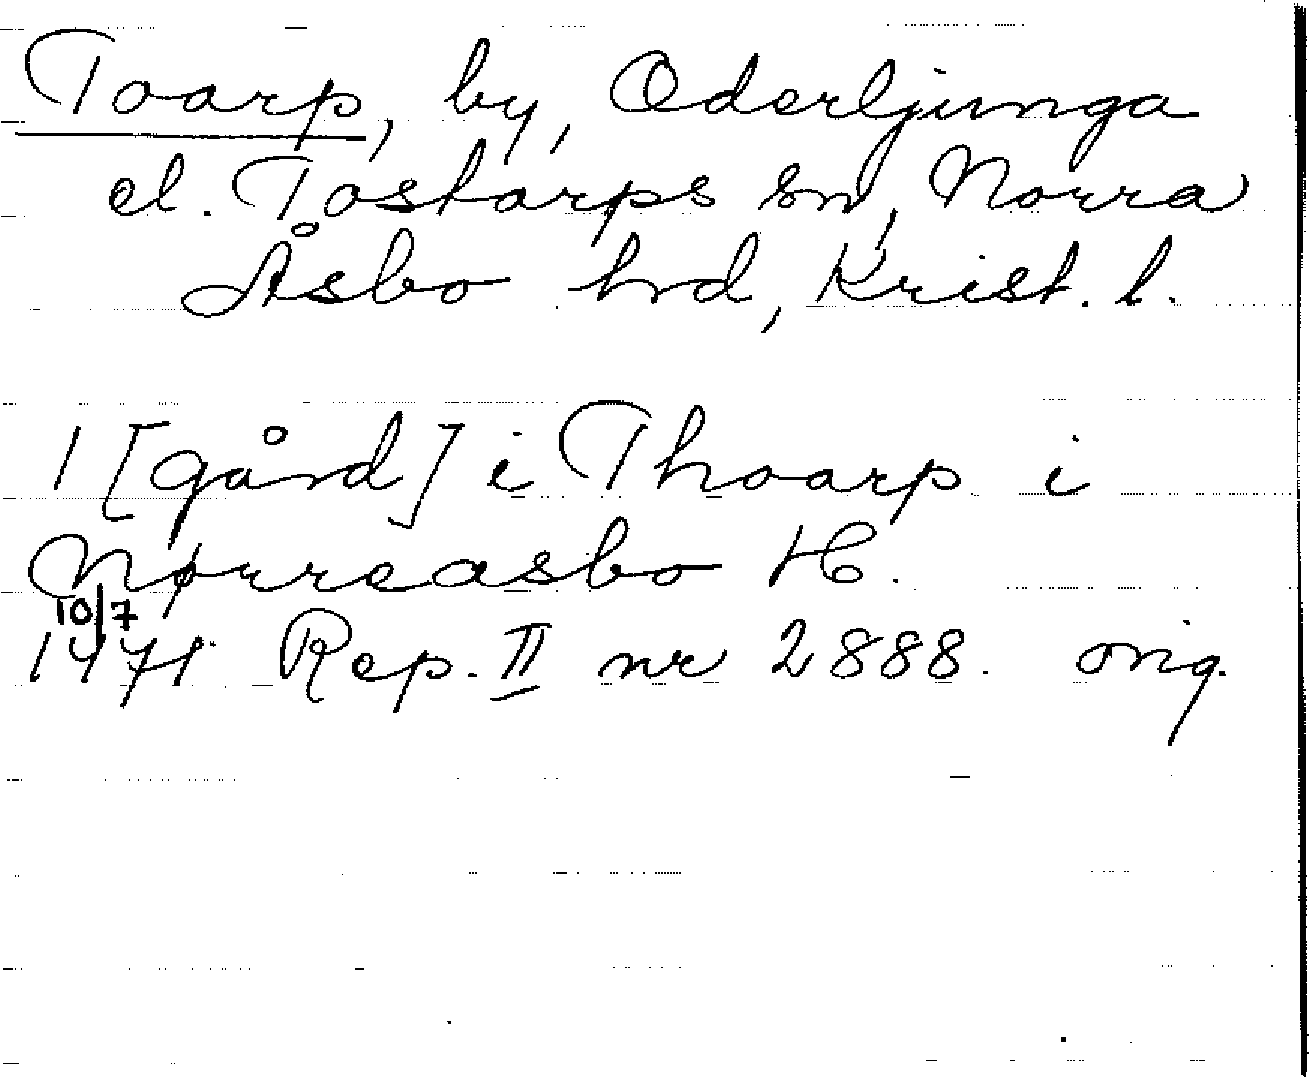 Toarp, by, Oderljunga
el. Tostarps sn, Norra
Åsbo hrd, Krist. l.
1 [gård] i Thoarp i
Nørreasbo H.
10/7
1471. Rep. II nr 2888. orig.